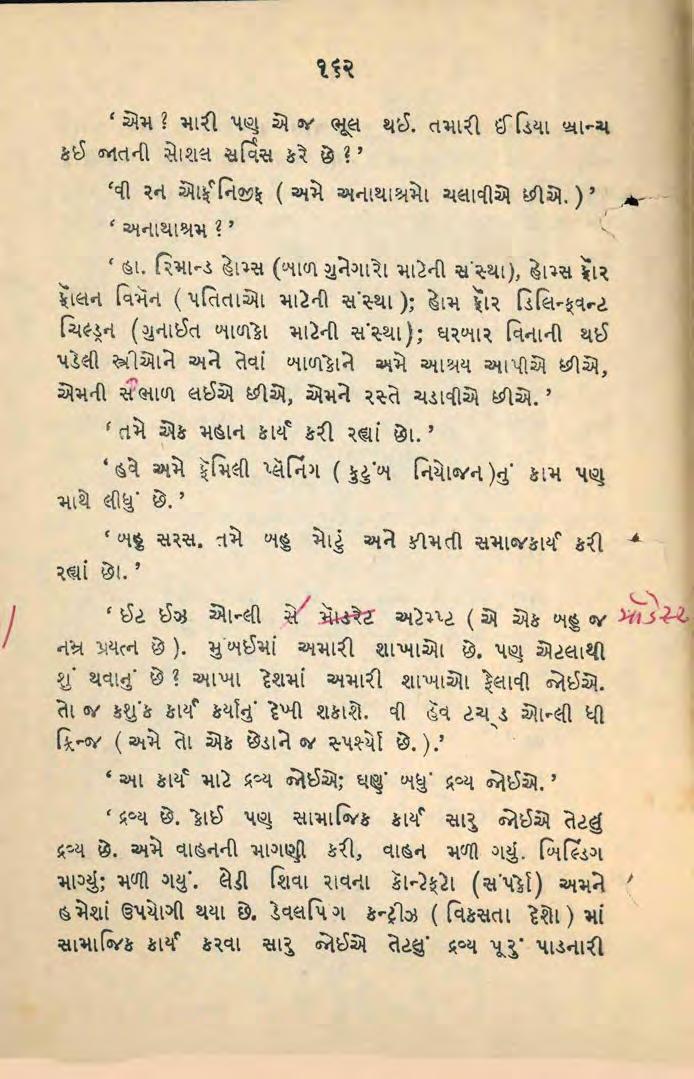 ૧૬૨
‘ એમ ? મારી પણ એ જ ભૂલ થઈ. તમારી ઈંડિયા બ્રાન્ચ
કઈ જાતની સોશલ સર્વિસ કરે છે ?’
‘વી રન ઓર્ફનિજીક ( અમે અનાથાશ્રમો ચલાવીએ છીએ. ) ’
‘ અનાથાશ્રમ ?’
‘ હા. રિમાન્ડ હોમ્સ (બાળ ગુનેગારો માટેની સંસ્થા), હોમ્સ ફૉર
ફૉલન વિમૅન ( પતિતાઓ માટેની સંસ્થા ); હોમ ફૉર ડિલિન્ક્વન્ટ
ચિલ્ડ્રન (ગુનાઈત બાળકો માટેની સંસ્થા); ઘરબાર વિનાની થઈ
પડેલી સ્ત્રીઓને અને તેવાં બાળકોને અમે આશ્રય આપીએ છીએ,
એમની સંભાળ લઈએ છીએ, એમને રસ્તે ચડાવીએ છીએ. ’
‘ તમે એક મહાન કાર્ય કરી રહ્યાં છો. ’
‘ હવે અમે ફૅમિલી પ્લૅનિંગ ( કુટુંબ નિયોજન )નું કામ પણ
માથે લીધું છે. ’
‘ બહુ સરસ. તમે બહુ મોટું અને કીમતી સમાજકાર્ય કરી
રહ્યાં છો. ’
‘ ઈટ ઈઝ ઓન્લી સે મૉડરેટ અટેમ્પ્ટ ( એ એક બહુ જ મૉડેસ્ટ
નમ્ર પ્રયત્ન છે ). મુંબઈમાં અમારી શાખાઓ છે. પણ એટલાથી
શું થવાનું છે ? આખા દેશમાં અમારી શાખાઓ ફેલાવી જોઈએ.
તો જ કશુંક કાર્ય કર્યાનું દેખી શકાશે. વી હૅવ ટચ્ડ ઓન્લી ધી
ફ્રિન્જ ( અમે તો એક છેડાને જ સ્પર્શ્યો છે. ).’
‘ આ કાર્ય માટે દ્રવ્ય જોઈએ; ઘણું બધું દ્રવ્ય જોઈએ. ’
‘ દ્રવ્ય છે. કોઈ પણ સામાજિક કાર્ય સારુ જોઈએ તેટલું
દ્રવ્ય છે. અમે વાહનની માગણી કરી, વાહન મળી ગયું. બિલ્ડિંગ
માગ્યું; મળી ગયું. લેડી શિવા રાવના કૉન્ટેક્ટો (સંપર્કો) અમને
હંમેશાં ઉપયોગી થયા છે. ડેવલપિંગ કન્ટ્રીઝ ( વિકસતા દેશો ) માં
સામાજિક કાર્ય કરવા સારુ જોઈએ તેટલું દ્રવ્ય પૂરું પાડનારી